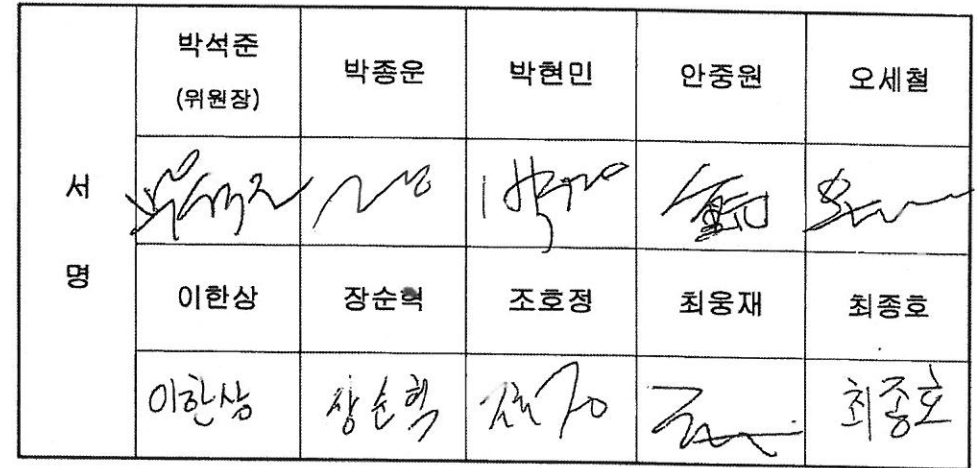 박석준
(위원장)
박종운
박현민
안중원
오세철
서
명
이한상
장순혁
조호정
최웅재
최종호
이한상
장순혁
최종호